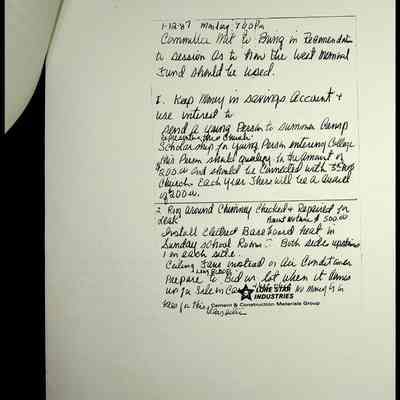 1-12-87 Monday 7:00 PM
Committee Met to Bring in Recmendation
to Session As to How the West Memorial
Fund should be used.
1. Keep Money in savings Account +
use interest to
Send A young Person to Summer Camp
Representing this Church
Scholarship for young Person entering College
this Person should qualify to the Amount of
$200.00 And should be Connected with
Church. Each year There will be a Award
of $200.00.
2. Ring Around Chimney Checked + Repaired for
leak $500.00
Install Electric Base board heat in
Sunday school Rooms. Both side upstairs
1 in each side.
Ceiling Fans instead or Air Conditioner
Prepare to Bid on lot when it Comes
up for Sale in Case
LONE STAR
INDUSTRIES
Cement & Construction Materials Group